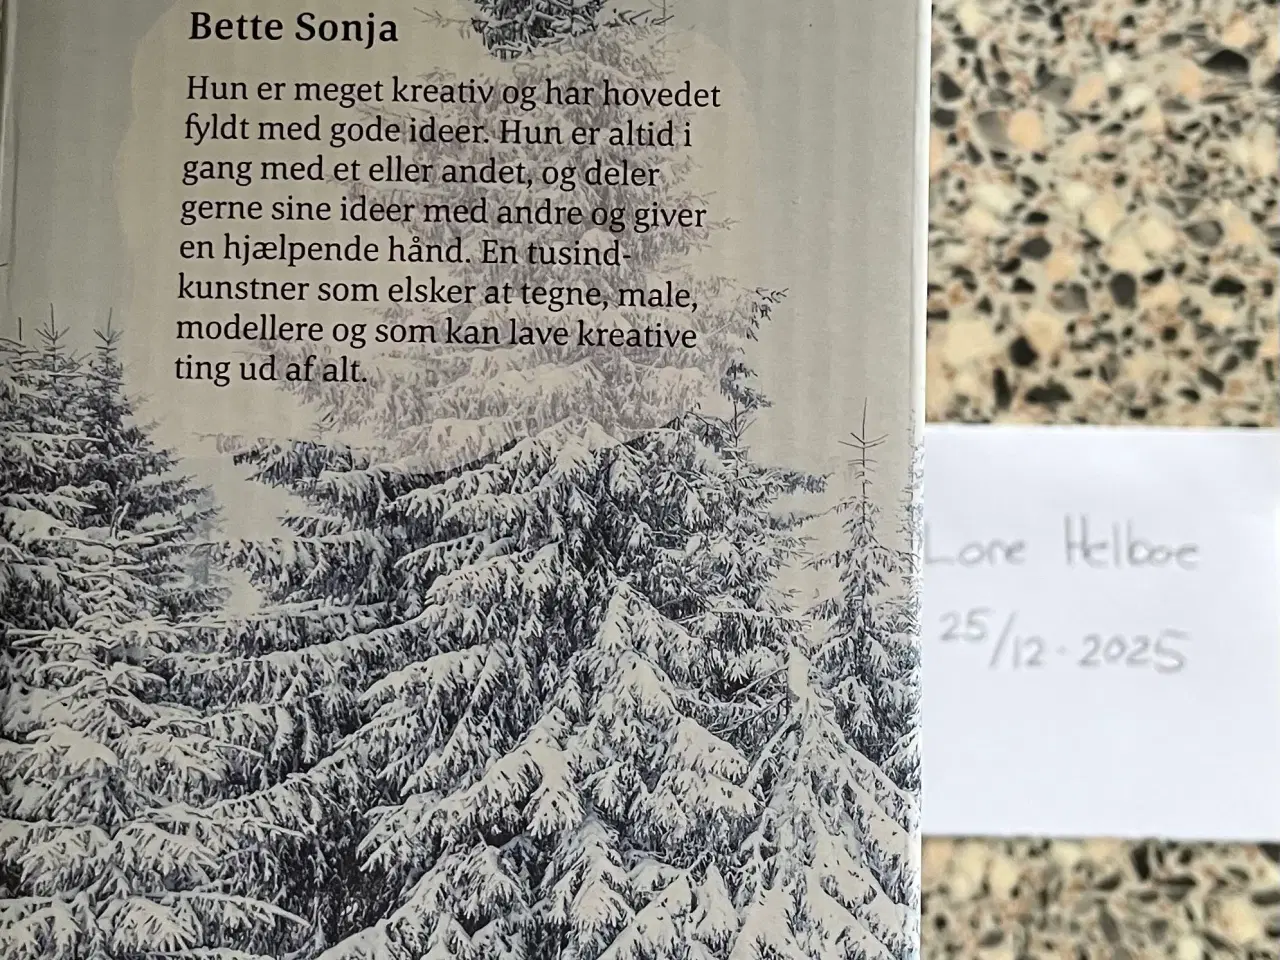 Bette Sonja
Hun er meget kreativ og har hovedet
fyldt med gode ideer. Hun er altid i
gang med et eller andet, og deler
gerne sine ideer med andre og giver
en hjælpende hånd. En tusind-
kunstner som elsker at tegne, male,
modellere og som kan lave kreative
ting ud af alt.
Lone Helboe
25/12·2025